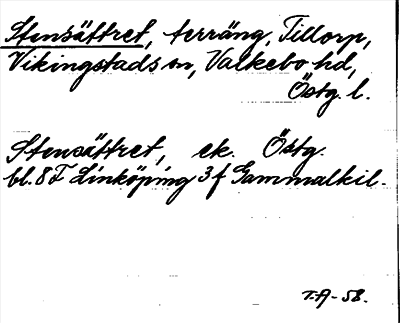 Stensättret, terräng, Tillorp,
Vikingstads sn, Valkebo hd,
Östg. l.
Stensättret, ek. Östg.
bl. 8F Linköping 3f Gammalkil.
T.A-58.